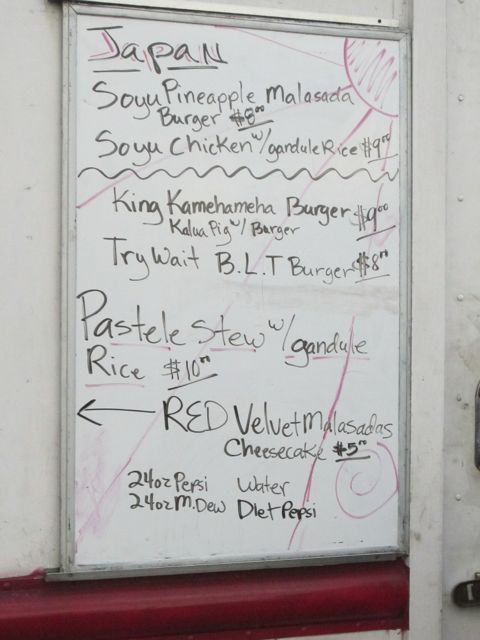 Japan
Soyu Pineapple Malasada
Burger $8⁰⁰
Soyu Chicken w/gandule Rice $9⁰⁰
King Kamehameha Burger $9⁰⁰
Kalua Pig w/ Burger
Try Wait B.L.T Burger $8⁰⁰
Pastele Stew w/gandule
Rice $10⁰⁰
← RED Velvet Malasadas
Cheesecake $5⁰⁰
24oz Pepsi Water
24oz M.Dew Diet Pepsi